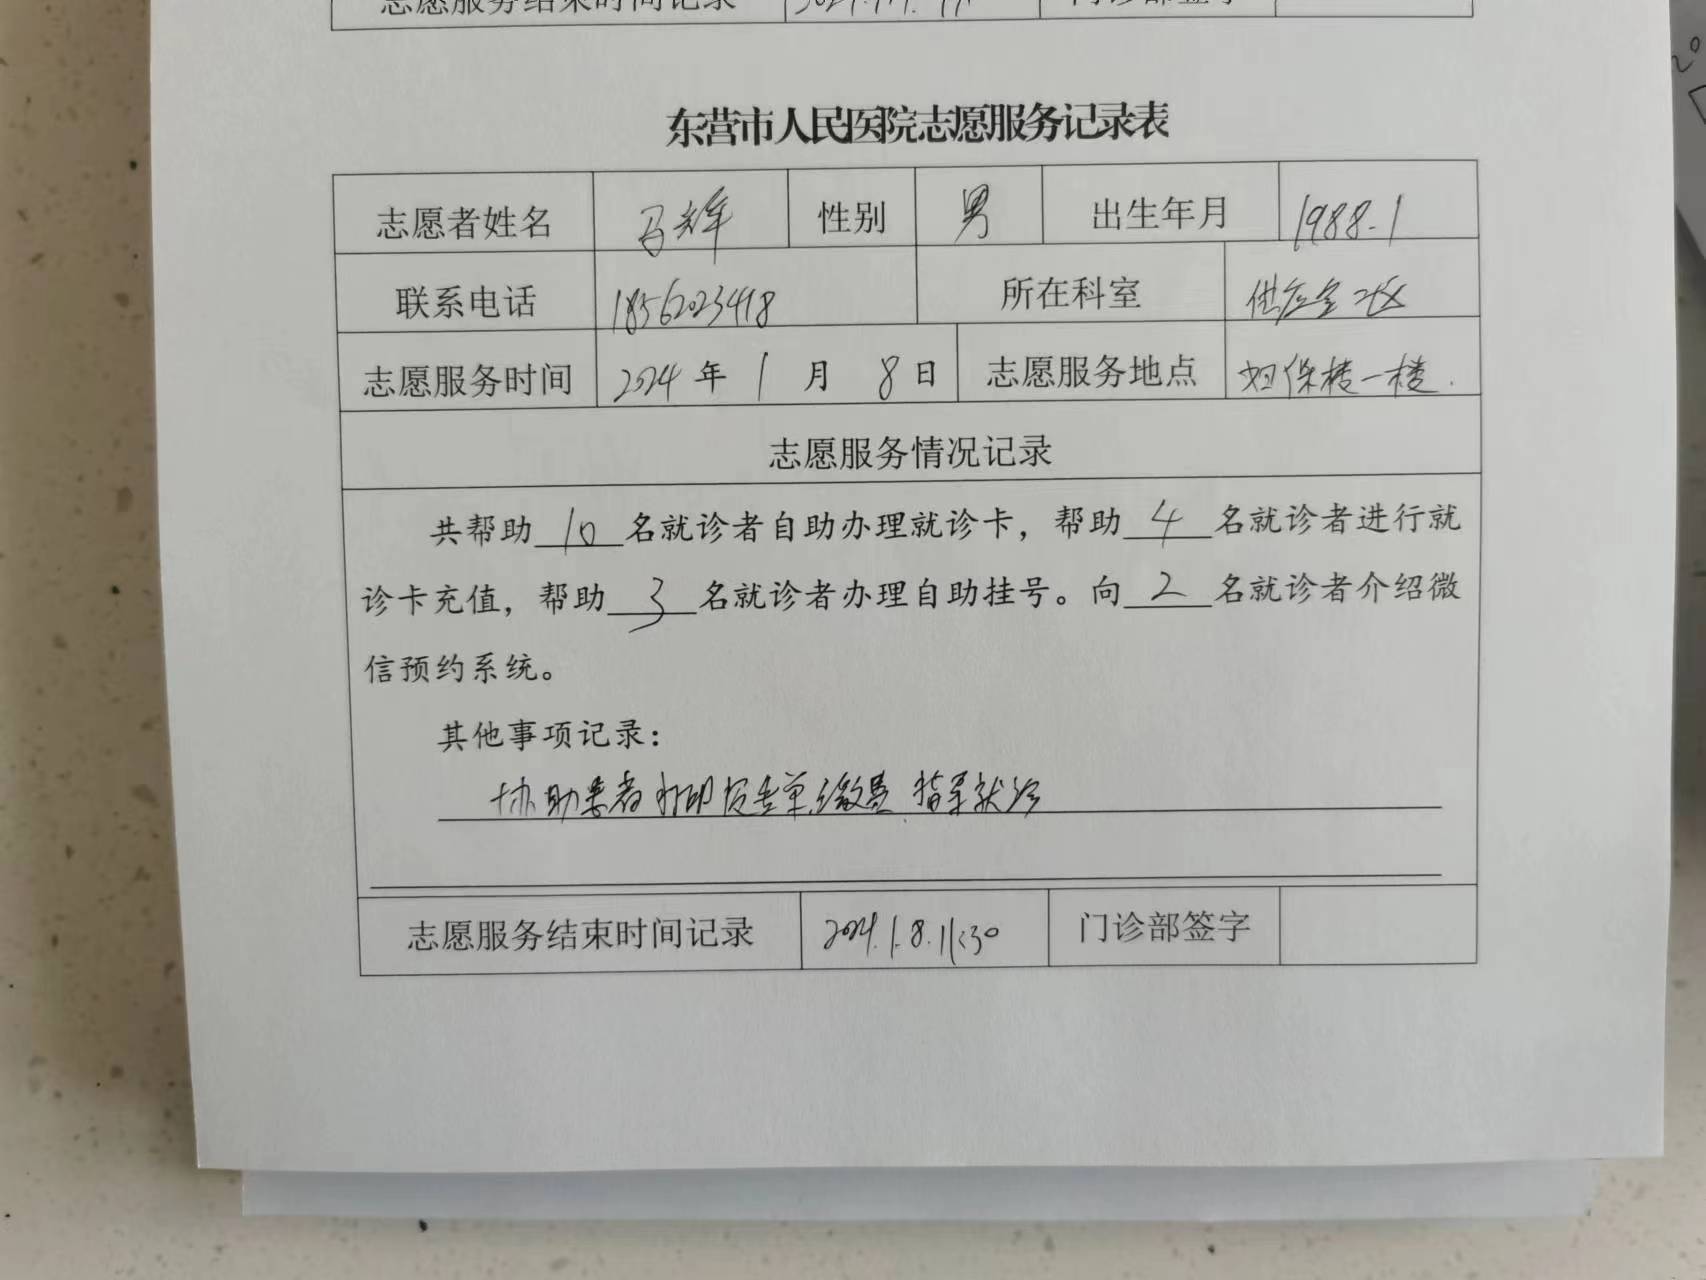 志愿服务结束时间记录 门诊部签字
东营市人民医院志愿服务记录表
志愿者姓名 马 性别 男 出生年月 1988.1
联系电话 18562023418 所在科室 供应室二区
志愿服务时间 2024 年 1 月 8 日 志愿服务地点 妇保楼一楼.
志愿服务情况记录
共帮助 10 名就诊者自助办理就诊卡，帮助 4 名就诊者进行就
诊卡充值，帮助 3 名就诊者办理自助挂号。向 2 名就诊者介绍微
信预约系统。
其他事项记录：
协助患者打印报告单缴费.指导就诊
志愿服务结束时间记录 2024.1.8.11:30 门诊部签字